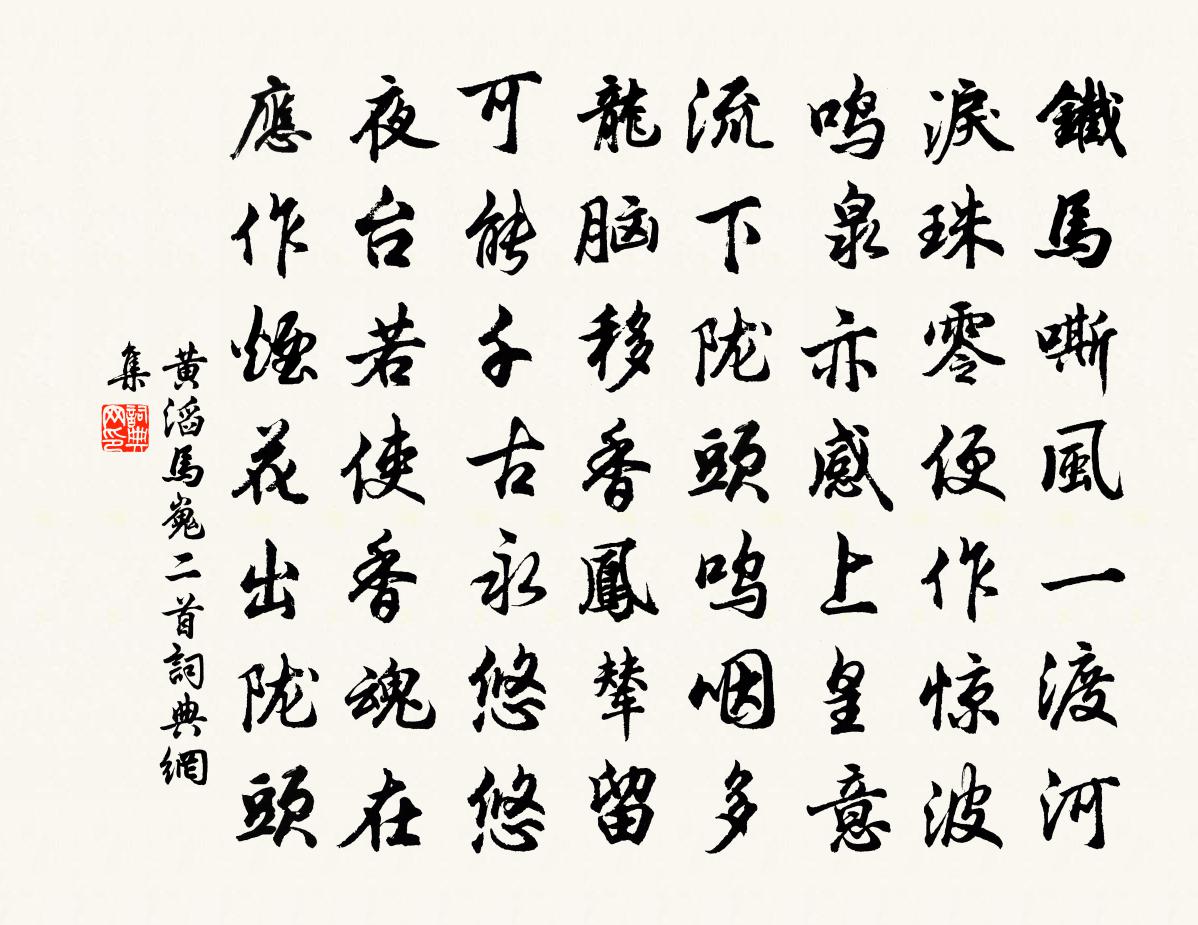 鐵馬嘶風一渡河
淚珠零便作惊波
鸣泉亦感上皇意
流下陇頭鸣咽多
龍脑移香鳳輦留
可能千古永悠悠
夜台若使香魂在
應作煙花出陇頭
黄滔馬嵬二首詞典網
集
詞典网印